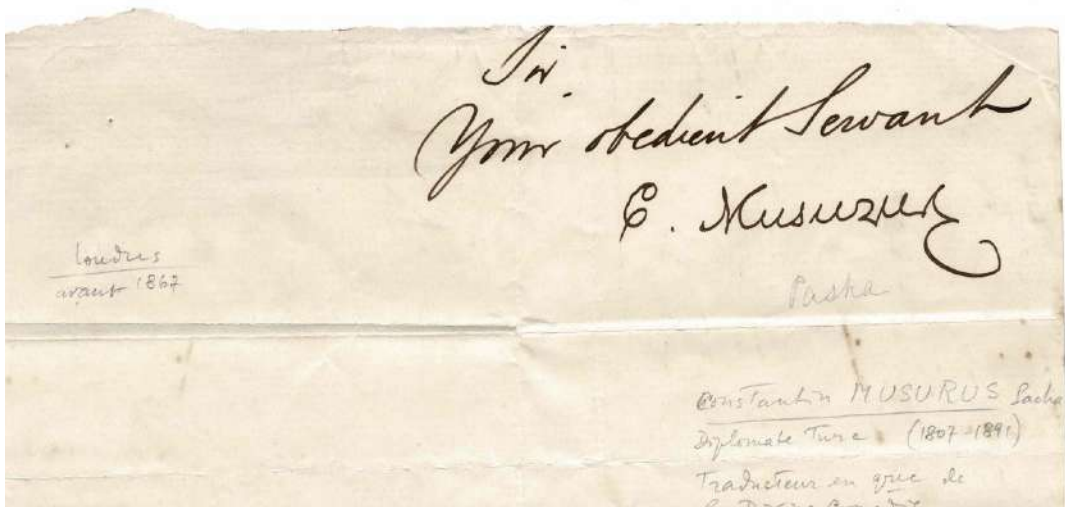 Sir,
Your obedient Servant
C. Musurus
Londres
avant 1867
Pasha
Constantin MUSURUS Pacha
Diplomate Turc (1807-1891)
Traducteur en grec de
la Divine Comédie